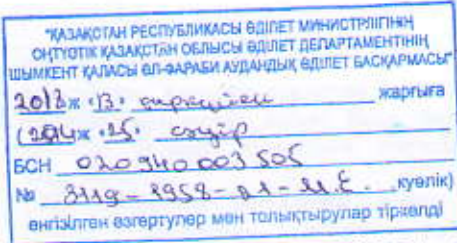 "ҚАЗАҚСТАН РЕСПУБЛИКАСЫ ӘДІЛЕТ МИНИСТРЛІГІНІҢ
ОҢТҮСТІК ҚАЗАҚСТАН ОБЛЫСЫ ӘДІЛЕТ ДЕПАРТАМЕНТІНІҢ
ШЫМКЕНТ ҚАЛАСЫ ӘЛ-ФАРАБИ АУДАНДЫҚ ӘДІЛЕТ БАСҚАРМАСЫ"
2013ж «13» жарғыға
ж «25» сәуір
БСН 020940003505
№ 3119-1958- куәлік)
енгізілген өзгертулер мен толықтырулар тіркелді